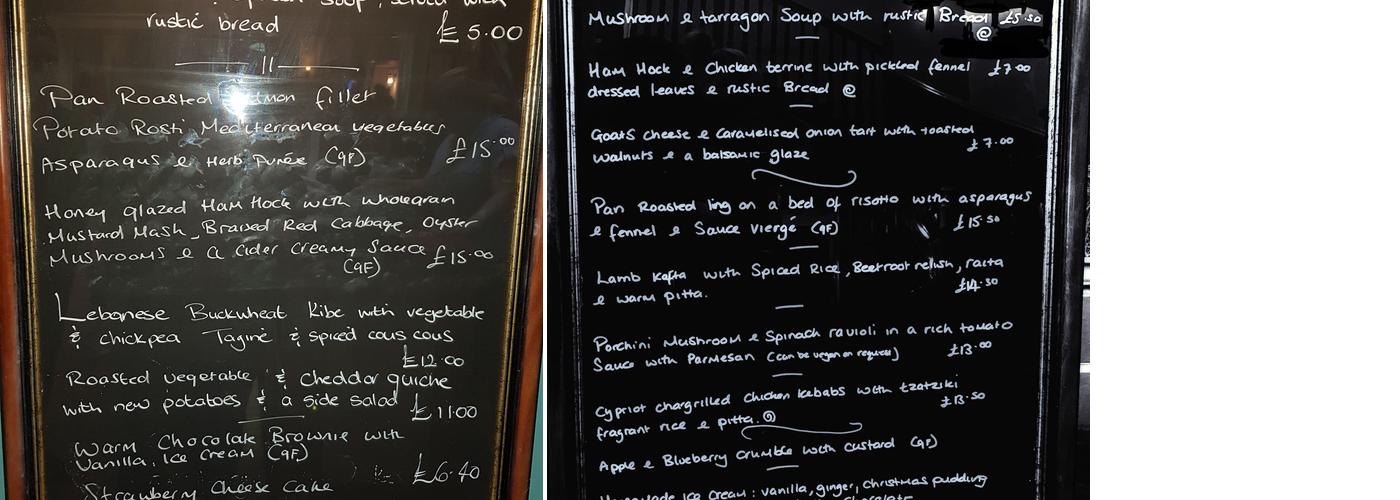 Soup, served with
rustic bread £5.00
Pan Roasted Salmon fillet
Potato Rosti, Mediterranean vegetables
Asparagus & Herb Purée (GF) £15.00
Honey glazed Ham Hock with wholegrain
Mustard Mash, Braised Red Cabbage, Oyster
Mushrooms & a Cider Creamy Sauce £15.00
(GF)
Lebanese Buckwheat Kibe with vegetable
& chickpea Tagine & spiced cous cous
£12.00
Roasted vegetable & Cheddar quiche
with new potatoes & a side salad £11.00
Warm Chocolate Brownie with
Vanilla Ice Cream (GF) £6.40
Strawberry Cheese Cake
Mushroom & tarragon Soup with rustic Bread £5.50
@
Ham Hock & Chicken terrine with pickled fennel £7.00
dressed leaves & rustic Bread @
Goats cheese & Caramelised onion tart with toasted
walnuts & a balsamic glaze £7.00
Pan Roasted ling on a bed of risotto with asparagus
& fennel & Sauce viergé (GF) £15.50
Lamb Kofta with Spiced Rice, Beetroot relish, raita
& warm pitta. £14.50
Porchini Mushroom & Spinach ravioli in a rich tomato
Sauce with Parmesan (can be vegan on request) £13.00
Cypriot chargrilled Chicken kebabs with tzatziki
fragrant rice & pitta. @ £13.50
Apple & Blueberry crumble with custard (GF)
Homemade Ice Cream: vanilla, ginger, christmas pudding
chocolate